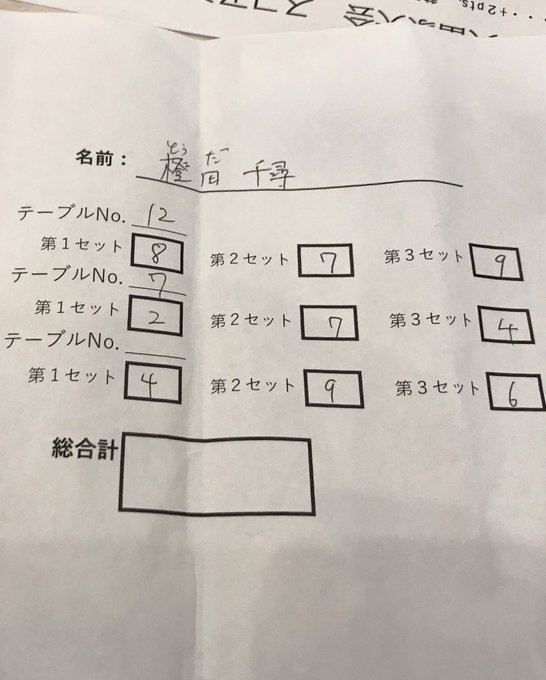 ・・・+2pts.
スコア
名前：橙田 千尋
とう だ
テーブルNo. 12
第1セット 8 第2セット 7 第3セット 9
テーブルNo. 7
第1セット 2 第2セット 7 第3セット 4
テーブルNo.
第1セット 4 第2セット 9 第3セット 6
総合計